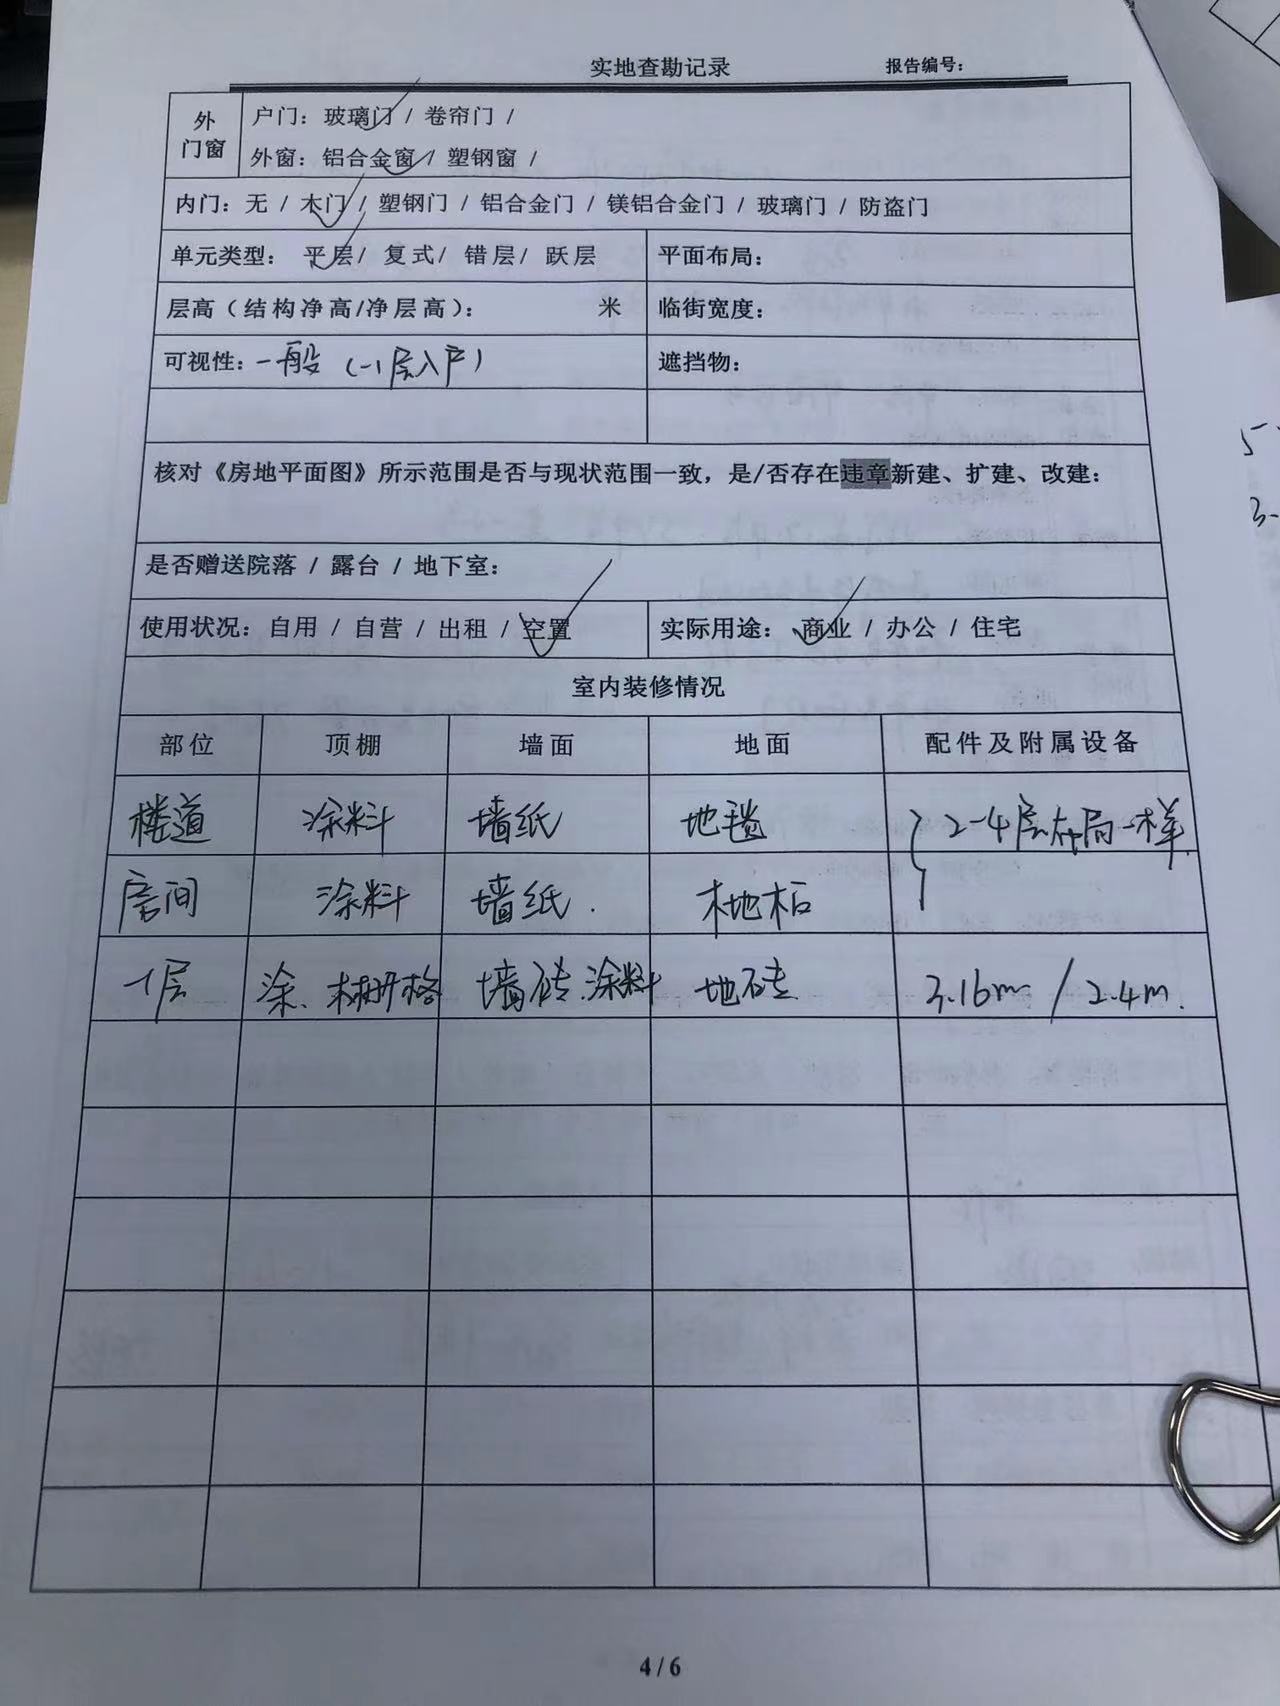 实地查勘记录 报告编号：
外门窗 户门：玻璃门 / 卷帘门 /
外窗：铝合金窗 / 塑钢窗 /
内门：无 / 木门 / 塑钢门 / 铝合金门 / 镁铝合金门 / 玻璃门 / 防盗门
单元类型： 平层/ 复式/ 错层/ 跃层 平面布局：
层高（结构净高/净层高）： 米 临街宽度：
可视性：一般（-1层入户） 遮挡物：
核对《房地平面图》所示范围是否与现状范围一致，是/否存在违章新建、扩建、改建：
是否赠送院落 / 露台 / 地下室：
使用状况：自用 / 自营 / 出租 / 空置 实际用途： 商业 / 办公 / 住宅
室内装修情况
部位 顶棚 墙面 地面 配件及附属设备
楼道 涂料 墙纸 地毯 2-4层布局一样.
房间 涂料 墙纸. 木地板
-1层 涂、木栅格 墙砖.涂料 地砖 3.16m / 2.4m.
4 / 6